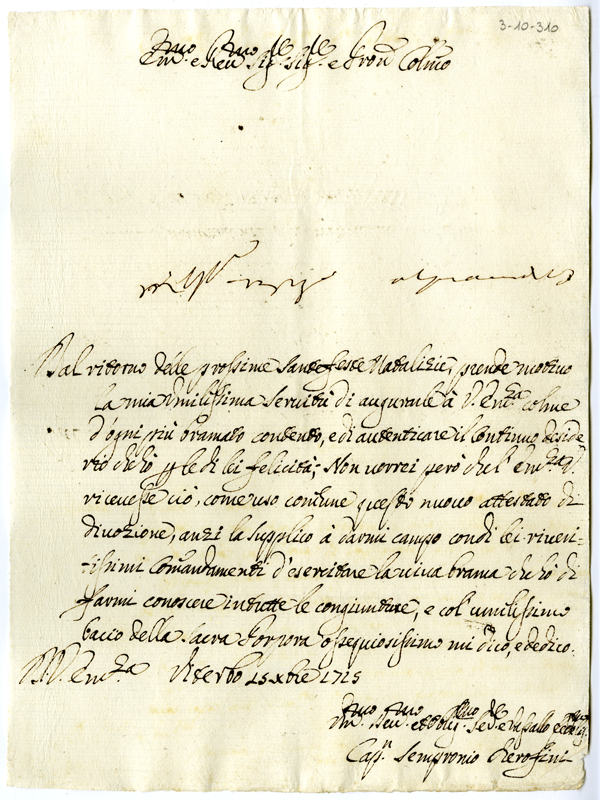 3-10-310
Em.mo e Rev.mo Sig.re Sig.re e Pron. Colmo
Dal ritorno delle prossime Sante feste Natalizie, prende motivo
la mia umilissima servitù di augurarle à V. Em.za colme
d'ogni più bramato contento, e di autenticare il continuo deside
rio che hò p le di lei felicità; Non vorrei però che l'Em.za V.
ricevesse ciò, come uso comune questo nuovo attestato di
divozione, anzi la supplico à darmi campo con di lei riveri-
tissimi comandamenti d'esercitare la viva brama che hò di
farmi conoscere in tutte le congiunture, e col umilissimo
bacio della Sacra Porpora ossequiosissimo mi dico, e dedico.
D. V. Em.za Viterbo 15 Xbre 1715
Um.mo Dev.mo et Obblig.mo Se.re e Vassallo
Cap.n Sempronio Cherofini